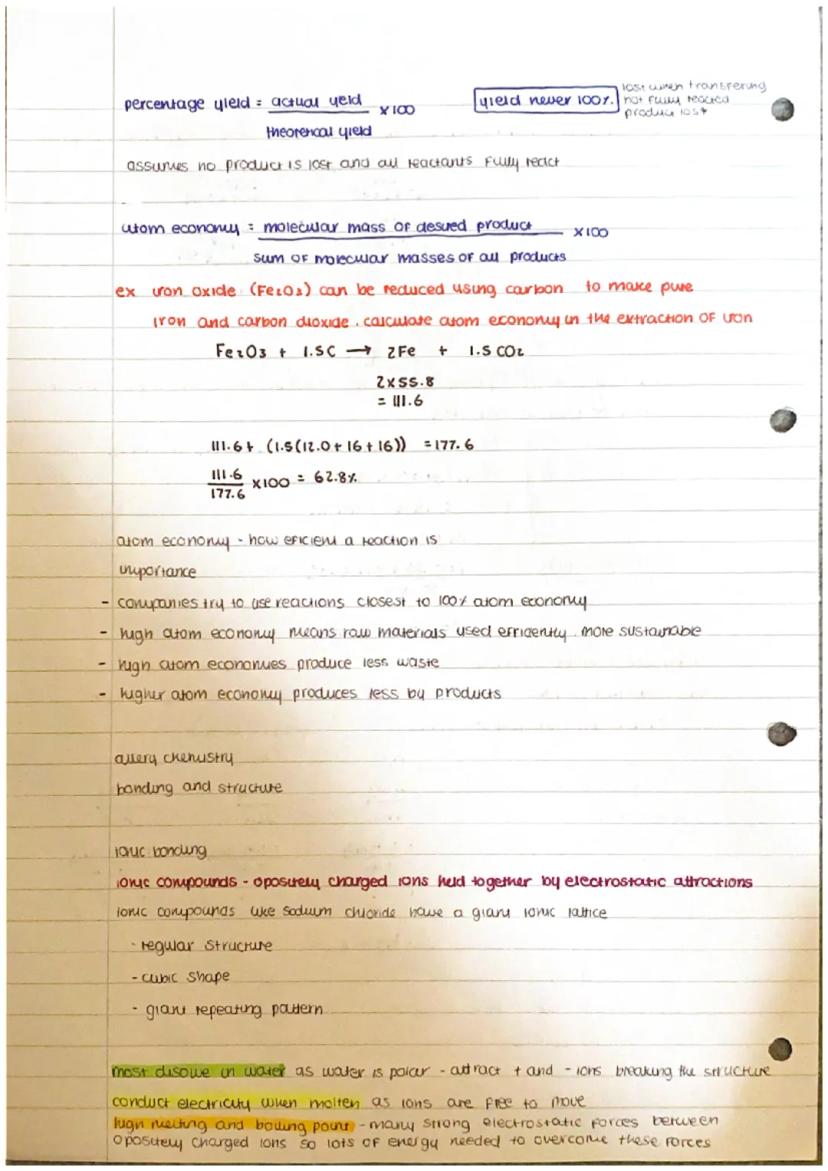 percentage yield = actual yield x100
theoretical yield
yield never 100%.
lost when transfering
not fully reacted
product lost
assumes no product is lost and all reactants fully react
atom economy = molecular mass of desired product x100
sum of molecular masses of all products
ex iron oxide (Fe2O3) can be reduced using carbon to make pure
iron and carbon dioxide. calculate atom economy in the extraction of iron
Fe2O3 + 1.5C → 2Fe + 1.5 CO2
2x55.8
= 111.6
111.6+ (1.5(12.0+16+16)) =177.6
111.6
177.6
x100 = 62.8%
atom economy - how eficient a reaction is
importance
- companies try to use reactions closest to 100% atom economy
- high atom economy means raw materials used efficiently. more sustainable
- high atom economies produce less waste
- higher atom economy produces less by products
allery chemistry
bonding and structure
ionic bonding
ionic compounds - opositely charged ions held together by electrostatic attractions
ionic compounds like sodium chloride have a giant ionic lattice
- regular structure
- cubic shape
- giant repeating pattern
most disolve in water as water is polar - attract + and - ions breaking the structure
conduct electricity when molten as ions are free to move
high melting and boiling point - many strong electrostatic forces between
opositely charged ions so lots of energy needed to overcome these forces